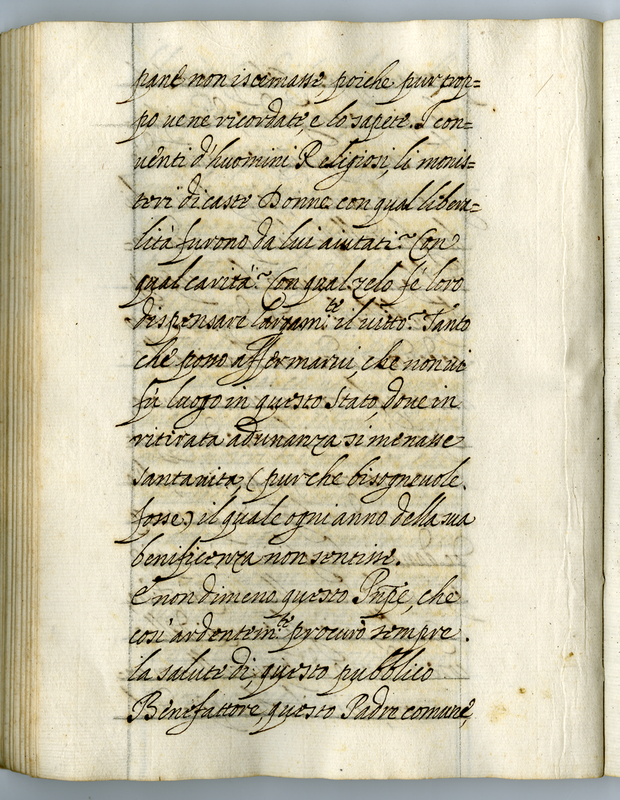 pane non iscemasse, poiche pur trop=
po ve ne ricordate, e lo sapete. I con=
venti d'huomini Religiosi, li monis=
teri di caste Donne con qual libera=
lità furono da lui aiutati? Con
qual carità? Con qual zelo fè loro
dispensare largam.te il vitto? Tanto
che posso affermarvi, che non vi
fù luogo in questo Stato, dove in
ritirata adunanza si menasse
santa vita (pur che bisognevole
fosse) il quale ogni anno della sua
benificenza non sentisse.
E nondimeno questo Pnpe, che
così ardentem.te procurò sempre
la salute di questo pubblico
Benefattore, questo Padre comune,